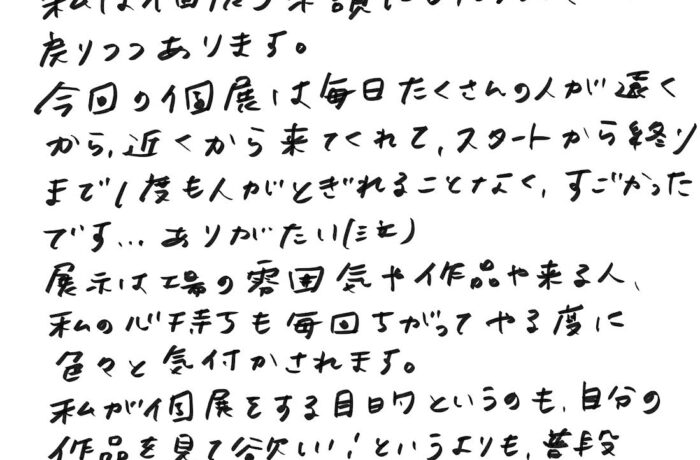 私は個展の
戻りつつあります。
今回の個展は毎日たくさんの人が遠く
から、近くから来てくれて、スタートから終り
まで1度も人がとぎれることなく、すごかった
です…ありがたい(泣)
展示は場の雰囲気や作品や来る人、
私の心持ちも毎回ちがってやる度に
色々と気付かされます。
私が個展をする目的というのも、自分の
作品を見て欲しい!というよりも、普段